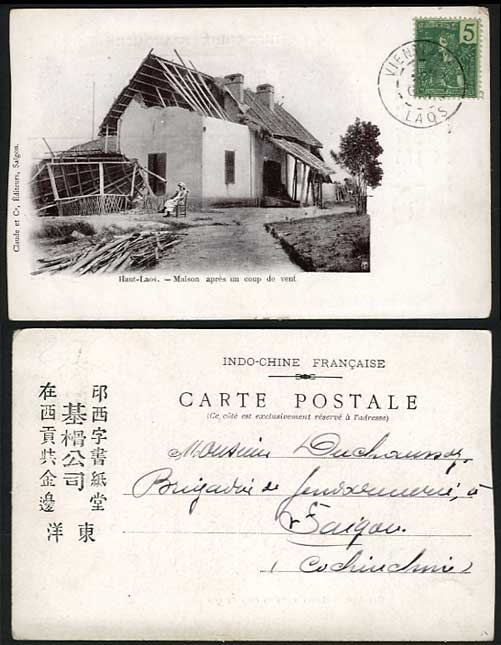 5
VIEN
LAOS
Claude et Cie, Éditeurs, Saïgon.
Haut-Laos. — Maison après un coup de vent
INDO-CHINE FRANÇAISE
CARTE POSTALE
(Ce côté est exclusivement réservé à l'adresse)
Monsieur Duchaussoy
Brigadier de gendarmerie, à
Saïgon
(Cochinchine)
印西字書紙堂
基櫓公司
在西貢共金邊
東洋